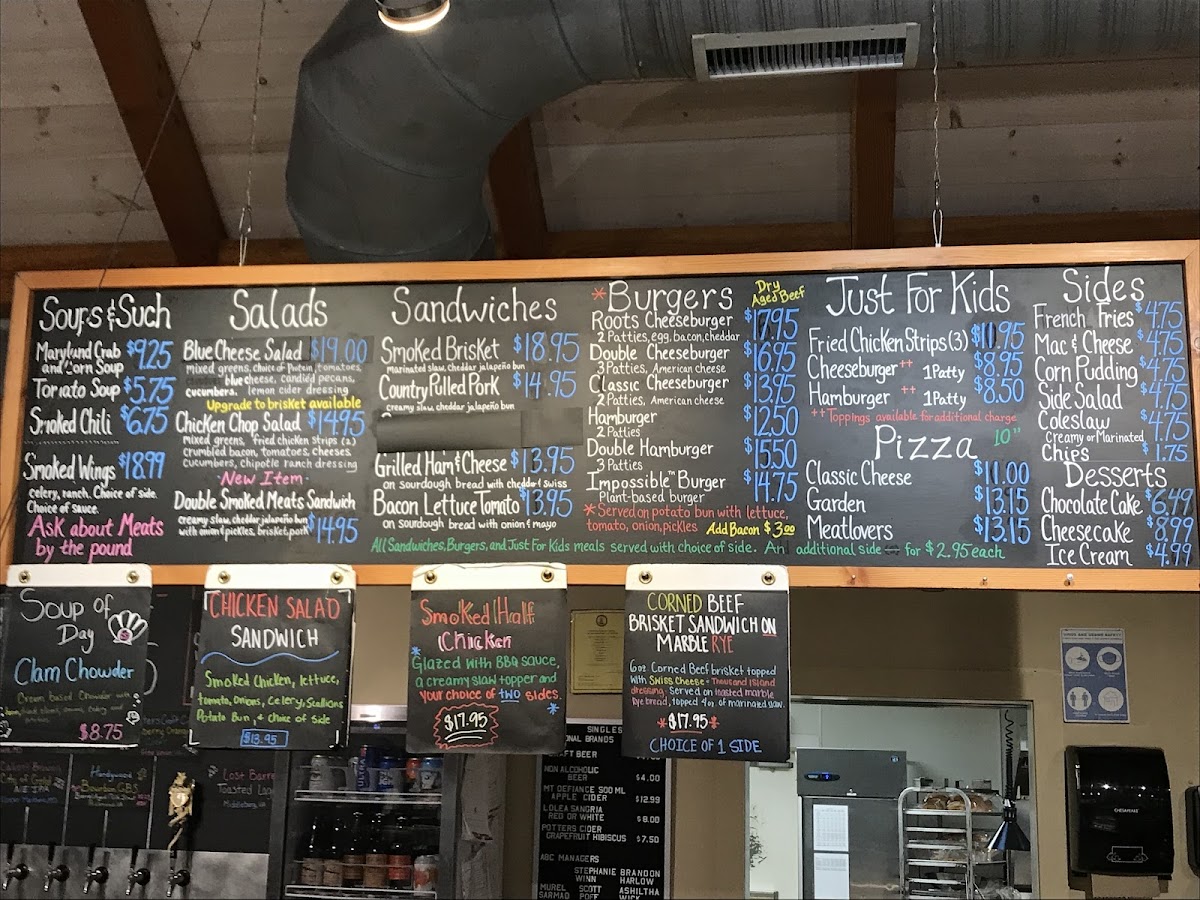 Soups & Such
Maryland Crab and Corn Soup $9.25
Tomato Soup $5.75
Smoked Chili $6.75
Smoked Wings $18.99
celery, ranch. Choice of side.
Choice of Sauce.
Ask about Meats
by the pound
Salads
Blue Cheese Salad $19.00
mixed greens, choice of Protein, tomatoes,
blue cheese, candied pecans,
cucumbers. lemon cider dressing
Upgrade to brisket available
Chicken Chop Salad $14.95
mixed greens, fried chicken strips (2)
crumbled bacon, tomatoes, cheeses
cucumbers, chipotle ranch dressing
New Item
Double Smoked Meats Sandwich
creamy slaw, cheddar jalapeño bun
with onion & pickles, brisket, pork $14.95
Sandwiches
Smoked Brisket $18.95
marinated slaw, cheddar jalapeño bun
Country Pulled Pork $14.95
creamy slaw, cheddar jalapeño bun
Grilled Ham & Cheese $13.95
on sourdough bread with cheddar & swiss
Bacon Lettuce Tomato $13.95
on sourdough bread with onion & mayo
*Burgers
Dry
Aged Beef
Roots Cheeseburger $17.95
2 Patties, egg, bacon, cheddar
Double Cheeseburger $16.95
3 Patties, American cheese
Classic Cheeseburger $13.95
2 Patties, American cheese
Hamburger $12.50
2 Patties
Double Hamburger $15.50
3 Patties
Impossible™ Burger $14.75
Plant-based burger
*Served on potato bun with lettuce,
tomato, onion, pickles Add Bacon $3.00
All Sandwiches, Burgers, and Just For Kids meals served with choice of side. An additional side for $2.95 each
Just For Kids
Fried Chicken Strips (3) $11.95
Cheeseburger ++ 1 Patty $8.95
Hamburger ++ 1 Patty $8.50
++Toppings available for additional charge
Pizza 10"
Classic Cheese $11.00
Garden $13.15
Meatlovers $13.15
Sides
French Fries $4.75
Mac & Cheese $4.75
Corn Pudding $4.75
Side Salad $4.75
Coleslaw $4.75
Creamy or Marinated
Chips $1.75
Desserts
Chocolate Cake $6.49
Cheesecake $8.99
Ice Cream $4.99
Soup of
Day
Clam Chowder
Cream based Chowder with
$8.75
CHICKEN SALAD
SANDWICH
Smoked Chicken, lettuce,
tomato, Onions, Celery, Scallions
Potato Bun, & choice of side
$13.95
Smoked Half
Chicken
Glazed with BBQ sauce,
a creamy slaw topper and
your choice of two sides.
$17.95
CORNED BEEF
BRISKET SANDWICH ON
MARBLE RYE
6oz Corned Beef brisket topped
with Swiss Cheese - Thousand Island
dressing. Served on toasted marble
rye bread, topped 4oz. of marinated slaw.
*$17.95*
CHOICE OF 1 SIDE
SINGLES
NON ALCOHOLIC
BEER $4.00
MT DEFIANCE 500 ML
APPLE CIDER $12.99
LOLEA SANGRIA
RED OR WHITE $8.00
POTTERS CIDER
GRAPEFRUIT HIBISCUS $7.50
ABC MANAGERS
STEPHANIE BRANDON
WINN HARLOW
MUREL SCOTT ASHILTHA
Lost Barre
Toasted Lag
Middleburg, VA
Hardywood
Bourbon GBS